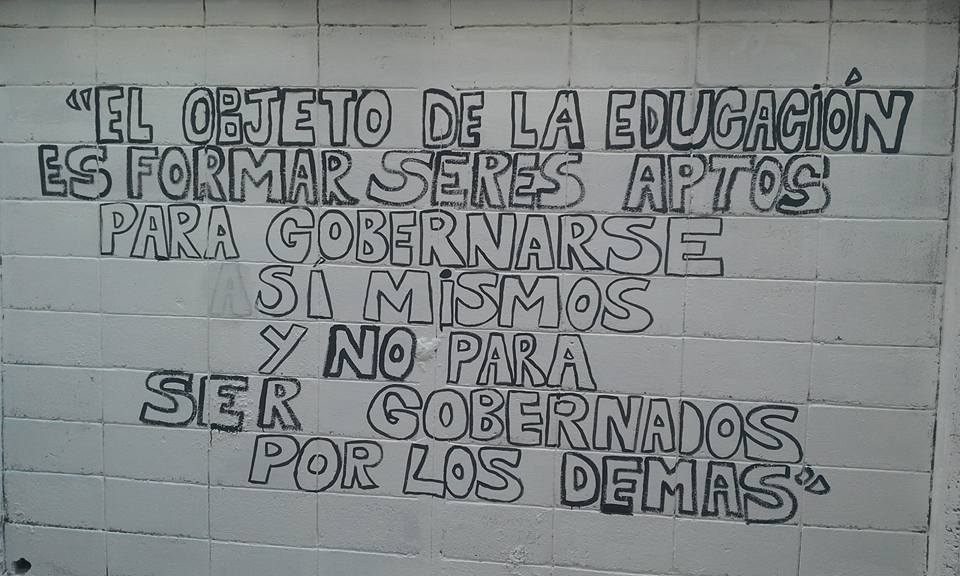 "EL OBJETO DE LA EDUCACIÓN
ES FORMAR SERES APTOS
PARA GOBERNARSE
A SÍ MISMOS
Y NO PARA
SER GOBERNADOS
POR LOS DEMAS"